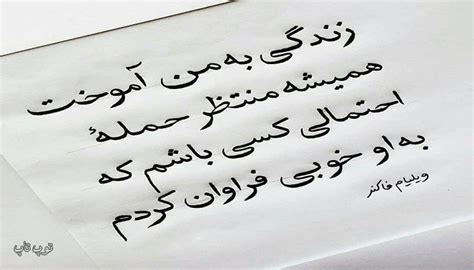 زندگی به من آموخت
همیشه منتظر حملهٔ
احتمالی کسی باشم که
به او خوبی فراوان کردم
ویلیام فاکنر
توپ تاپ